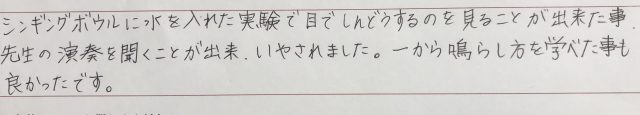 シンギングボウルに水を入れた実験で目でしんどうするのを見ることが出来た事、
先生の演奏を聞くことが出来、いやされました。一から鳴らし方を学べた事も
良かったです。